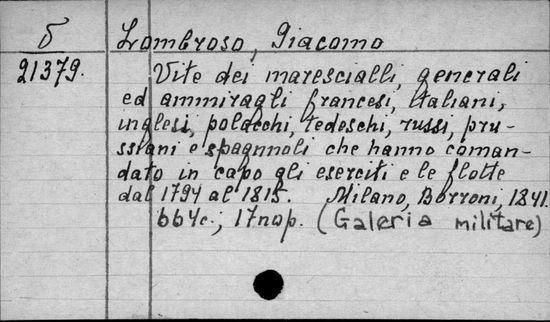 δ Lombroso, Giacomo
21379. Vite dei marescialli, generali
ed ammiragli francesi, Italiani,
inglesi, polacchi, tedeschi, russi, pru-
ssiani e spagnuoli che hanno coman-
dato in capo gli eserciti e le flotte
dal 1794 al 1815. Milano, Borroni, 1841.
664c.; 17пор. (Galeria militare)